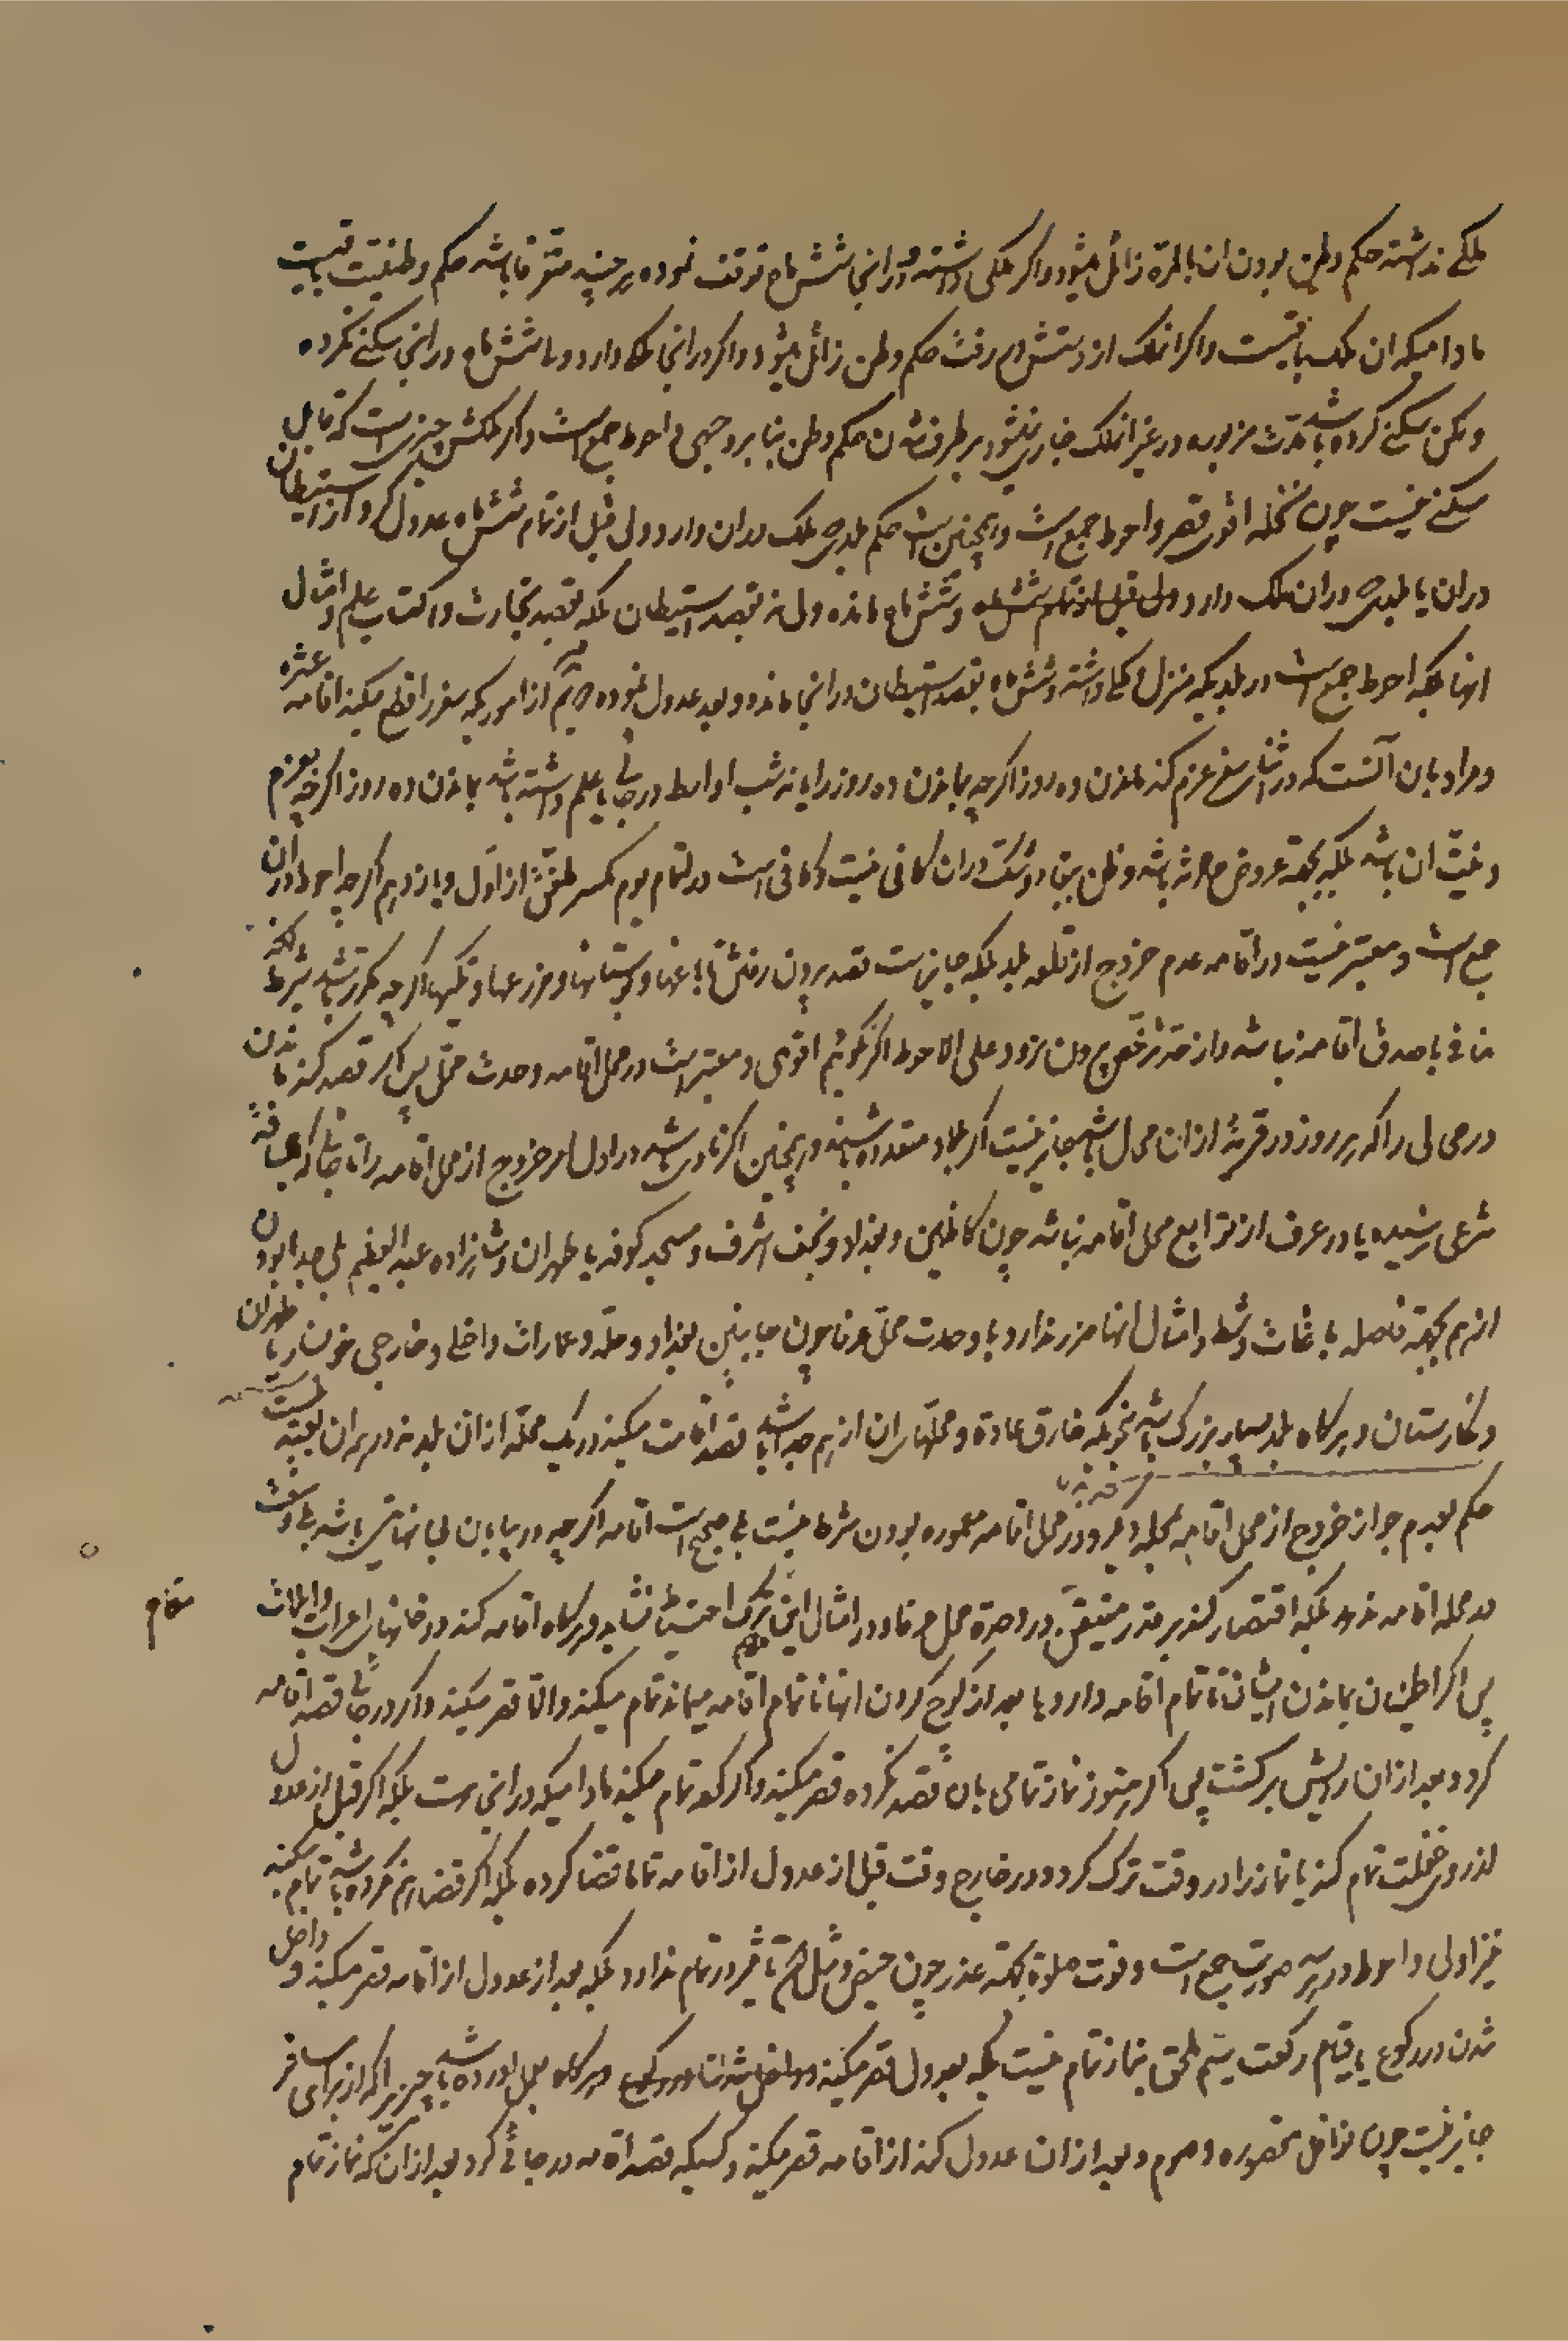 ملکے نداشته حکم وطن بودن ان بالمره زائل میشود و اکر ملکی داشته و در انجا شش ماه توقف نموده هر چند متفرقا باشد حکم وطنیت باقیست
مادامیکه ان ملک باقیست و اکر انملک از دستش در رفت حکم وطن زائل میشود و اکر در انجا ملک دارد و اما شش ماه در انجا سکنے نکرده
و لکن سکنے کرده باشد مدت مزبوره در غیر انملک جاری نمیشود بر طرف شدن حکم وطن بنا بر وجهی و احوط جمع است و اکر ملکش چیزی است که قابل
سکنے نیست چون نخله اقوی قصر و احوط جمع است و همچنین است حکم بلدی ملک در ان دارد ولی قبل از تمام شش ماه عدول کرد از استیطان
در ان یا بلدی در ان ملک دارد و شش ماه مانده ولی نه بقصد استیطان بلکه بقصد تجارت و اکتساب علم و امثال
انها بلکه احوط جمع است در بلدیکه منزل ملکے داشته و شش ماه بقصد استیطان در انجا مانده و بعد عدول نموده سیم از اموریکه سفر را قطع میکند اقامه عشره
و مراد بان آنست که در اثنای سفر عزم کند بماندن ده روز اکرچه بماندن ده روز را با نه شب اواسط در جائی یا علم داشته باشد بماندن ده روز اکرچه بعزم
و نیت ان نباشد بلکه بجهة عروض باشد و ظن بقاء و شک در ان کافی نیست و کافی است در تمام یوم کسر ملفق از اول و یازدهم اکرچه احوط در ان
جمع است و معتبر نیست در اقامه عدم خروج از قلعه بلد بلکه جایز است قصد بیرون رفتن تا باغها و بستانها و مزرعها و تکیها اکرچه مکرر باشد بشرط انکه
منافی با صدق اقامه نباشد و از حد ترخص بیرون نرود علی الاحوط اکر نکوئیم اقوی و معتبر است در محل اقامه وحدت محل پس اکر قصد کند ماندن
در محالی را که هر روز در قریهٔ از ان محال باشد جایز نیست اکر بلاد متعدده باشند و همچنین اکر ناوی باشد در اول امر خروج از محل اقامه را تا جائی که بمسافة
شرعی نرسیده یا در عرف از توابع محل اقامه نباشد چون کاظمین و بغداد و نجف اشرف و مسجد کوفه یا طهران و شاهزاده عبد العظیم بلی جدا بودن
از هم بجهة فاصله باغات و شط و امثال انها ضرر ندارد با وحدت محل عرفا چون جانبین بغداد و حله و عمارات داخلی و خارجی خونسار یا طهران
و نکارستان و هر کاه بلد بسیار بزرک باشد بنحویکه خارق عادة و محلهای ان از هم جدا باشد قصد اقامت میکند در یک محله از ان بلد نه در همه ان بلد
حکم بعدم جواز خروج از محل اقامه بمحله دیکر و در محل اقامه معموره بودن شرط نیست بلی صحیح است اقامه اکرچه در بیابان بی انتهائی باشد بلی
در محله اقامه نه بلکه اقتصار کند بر قدر متیقن در وحدة محل عرفا و در امثال این ترک احتیاط نشاید و هر کاه اقامه کند در خانهای اعراب و ایلات مقام
پس اکر اطمینان بماندن ایشان تا تمام اقامه دارد یا بعد از کوچ کردن انها تا تمام اقامه میماند تمام میکند والا قصر میکند و اکر در جائی قصد اقامه
کرد و بعد از ان رایش برکشت پس اکر هنوز نماز تمامی بان قصد نکرده قصر میکند و اکر کرده تمام میکند مادامیکه در انجاست بلکه اکر قبل از عدول
از روی غفلت تمام کند یا نماز را در وقت ترک کرد و در خارج وقت قبل از عدول از اقامه تماما قضا کرده بلکه اکر قضا هم نکرده باشد تمام میکند
نیز اولی و احوط در سه صورت جمع است و فوت صلوة بجهة عذر چون حیض و مثل ان تاثیر در تمام ندارد بلکه بعد از عدول از اقامه قصر میکند و داخل
شدن در رکوع یا قیام رکعت سیم ملحق بنماز تمام نیست بلکه بعدول قصر میکند و هر کاه بعمل اورده باشد چیزیرا که از برای مسافر
جایز نیست چون نوافل مقصوره و صوم و بعد از ان عدول کند از اقامه قصر میکند و کسیکه قصد اقامه در جائی کرد بعد از ان که نماز تمام